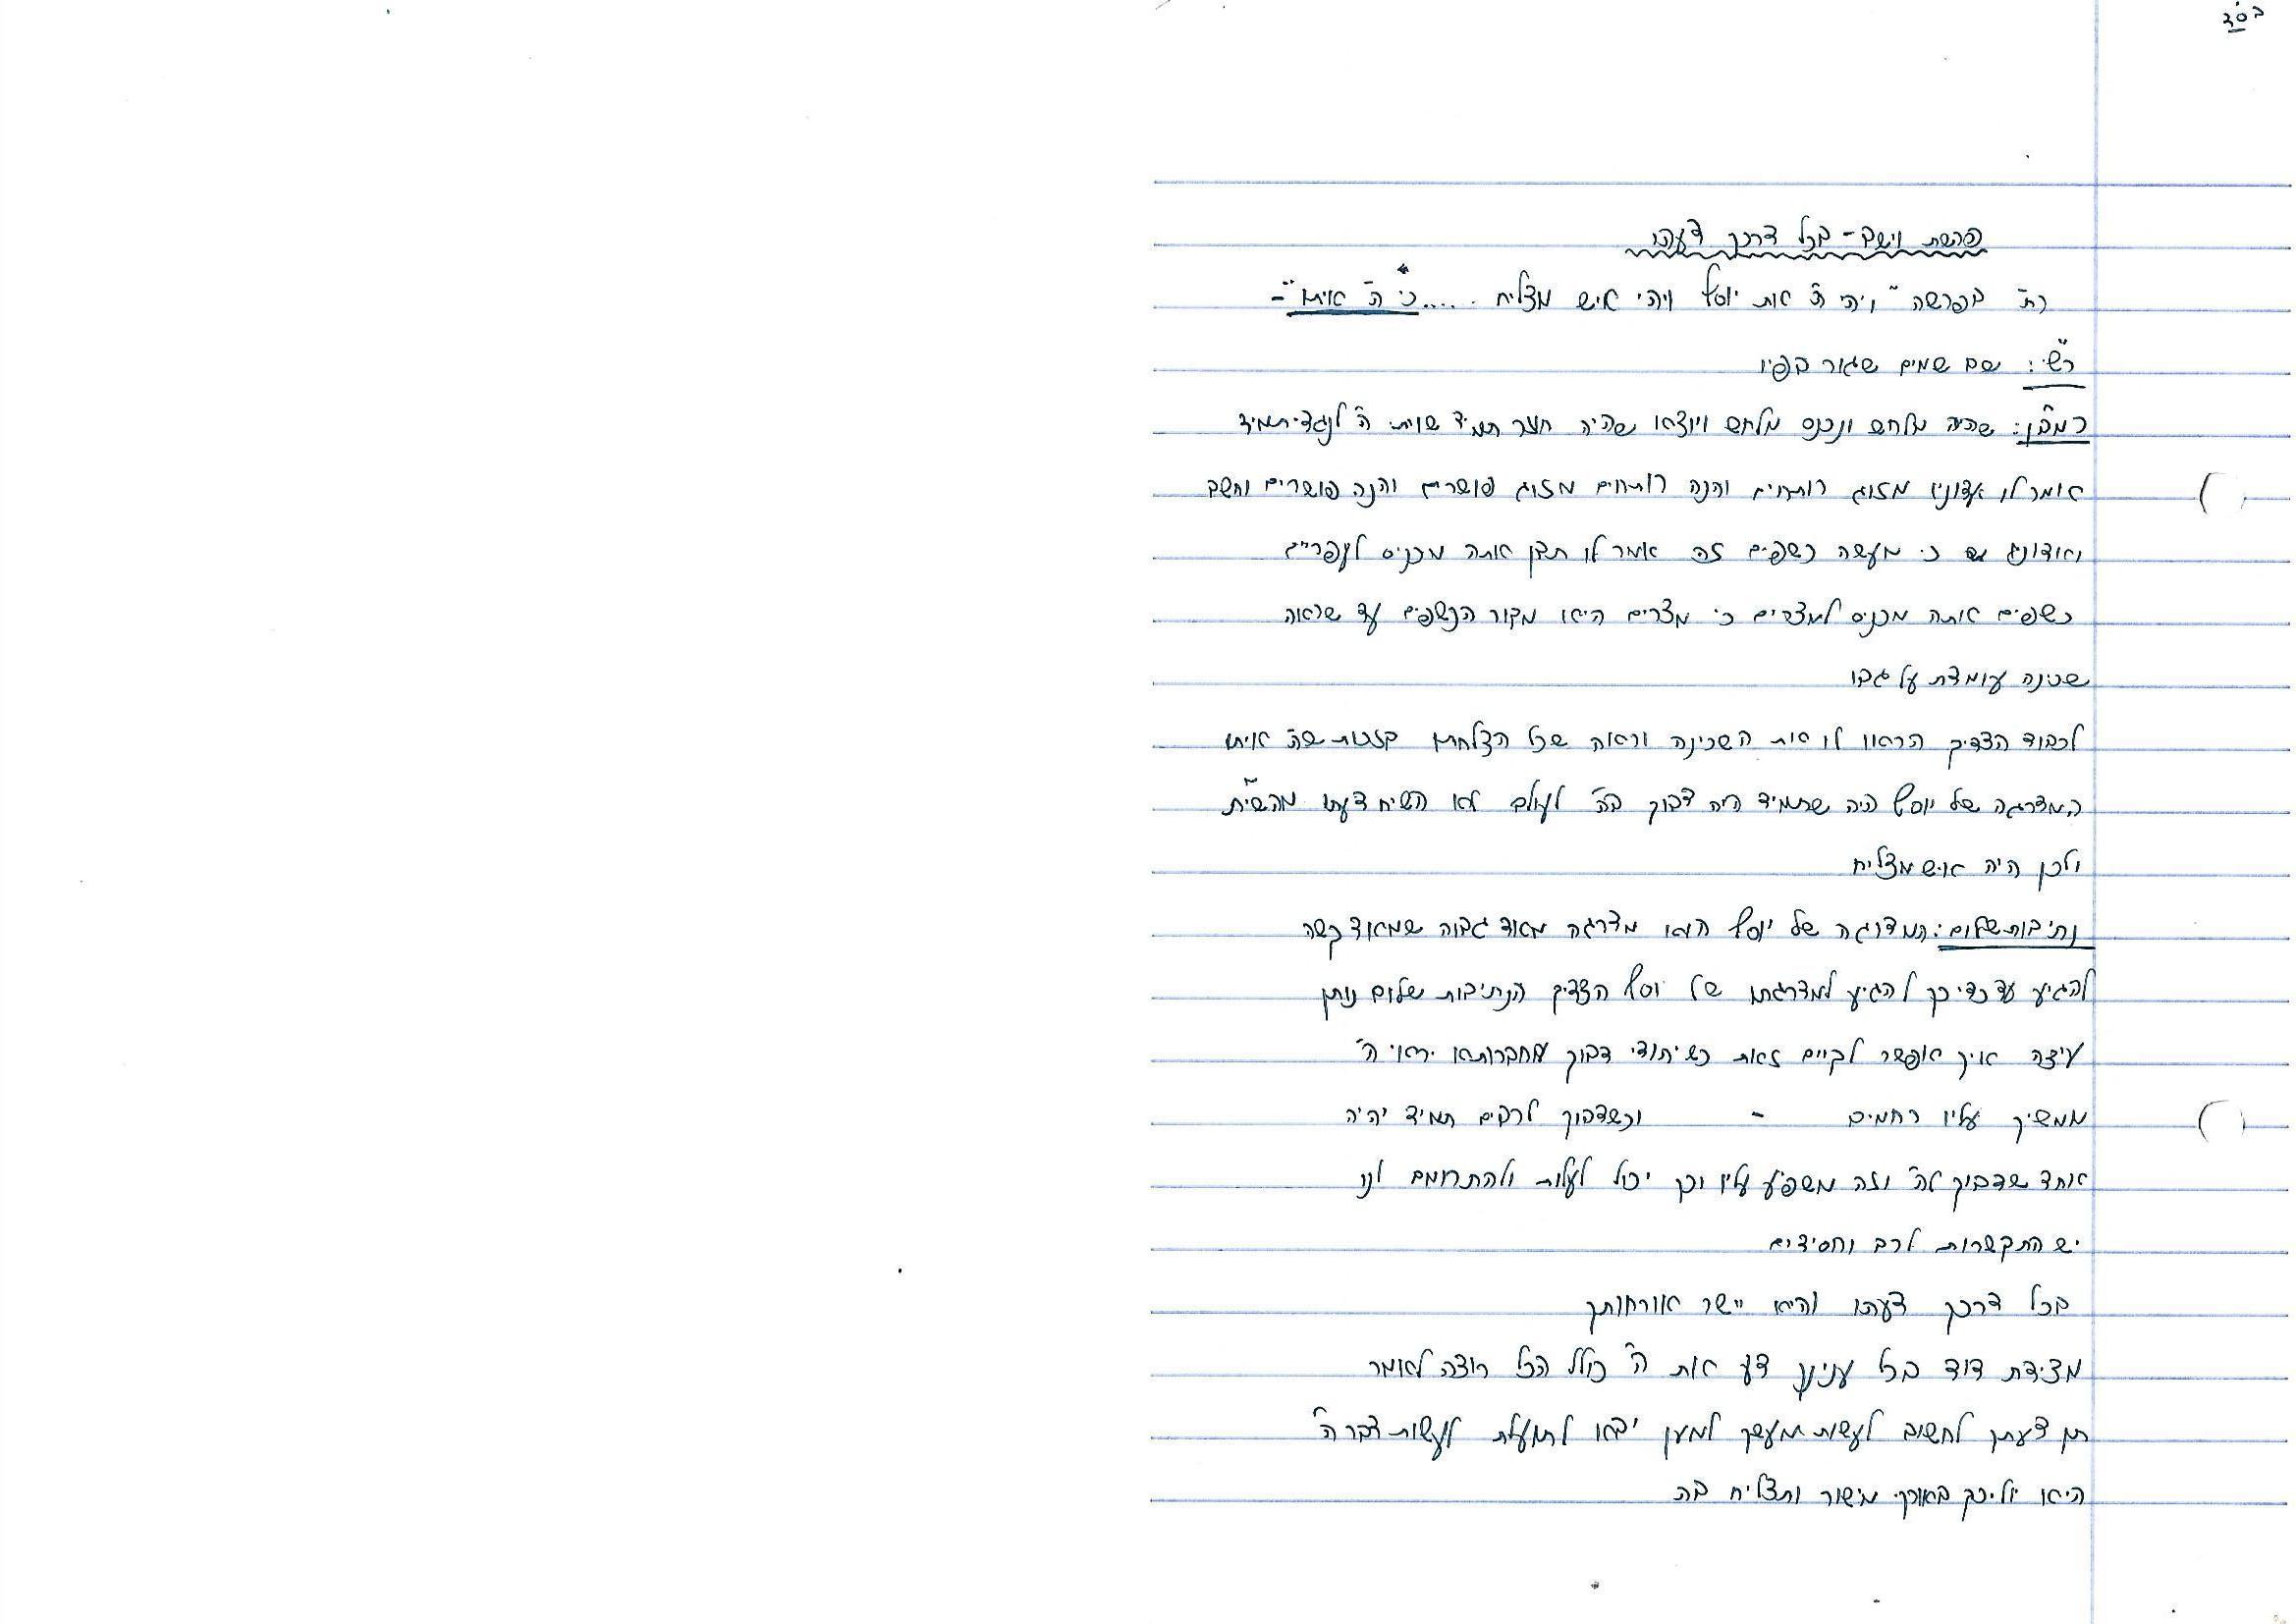 בס"ד
פרשת וישב - בכל דרכך דעהו
בפרשה "ויהי ה' את יוסף ויהי איש מצליח ..... כי ה' איתו" -
רש"י: שם שמים שגור בפיו
רמב"ן: שהיה מלחש ונכנס מלחש ויוצא שהיה תמיד שויתי ה' לנגדי תמיד
אומר לו אדוניו מזוג רותחים והנה רותחים מזוג פושרים והנה פושרים וחשב
אדוניו כי מעשה כשפים זה אמר לו תבן אתה מכניס לעפריים
כשפים אתה מכניס למצרים כי מצרים היא מקור הכשפים עד שראה
שכינה עומדת על גבו
לכבוד הצדיק הראו לו את השכינה וראה שכל הצלחתו בזכות שה' איתו
המדרגה של יוסף היה שתמיד היה דבוק בה' לעולם לא השיח דעתו מהשי"ת
ולכן היה איש מצליח
נתיבות שלום: המדרגה של יוסף הוא מדרגה מאוד גבוה שמאוד קשה
להגיע עד כדי כך להגיע למדרגתו של יוסף הצדיק הנתיבות שלום נותן
עיצה איך אפשר לקיים זאת כשיהודי דבוק מחברותא יראי ה'
ממשיך עליו רחמים - וכשדבוק לרבים תמיד יהיה
אחד שדבוק לה' וזה משפיע עליו וכך יכול לעלות ולהתרומם לנו
יש התקשרות לרב וחסידים
בכל דרכך דעהו והיא יישר אורחותך
מצידת דוד בכל ענינך דע את ה' כולל הכל רוצה לאומר
תן דעתך לחשוב לעשות מעשך למען יבא לתועלת לעשות דבר ה'
היא יוליכך באורך מישור ותצליח בה